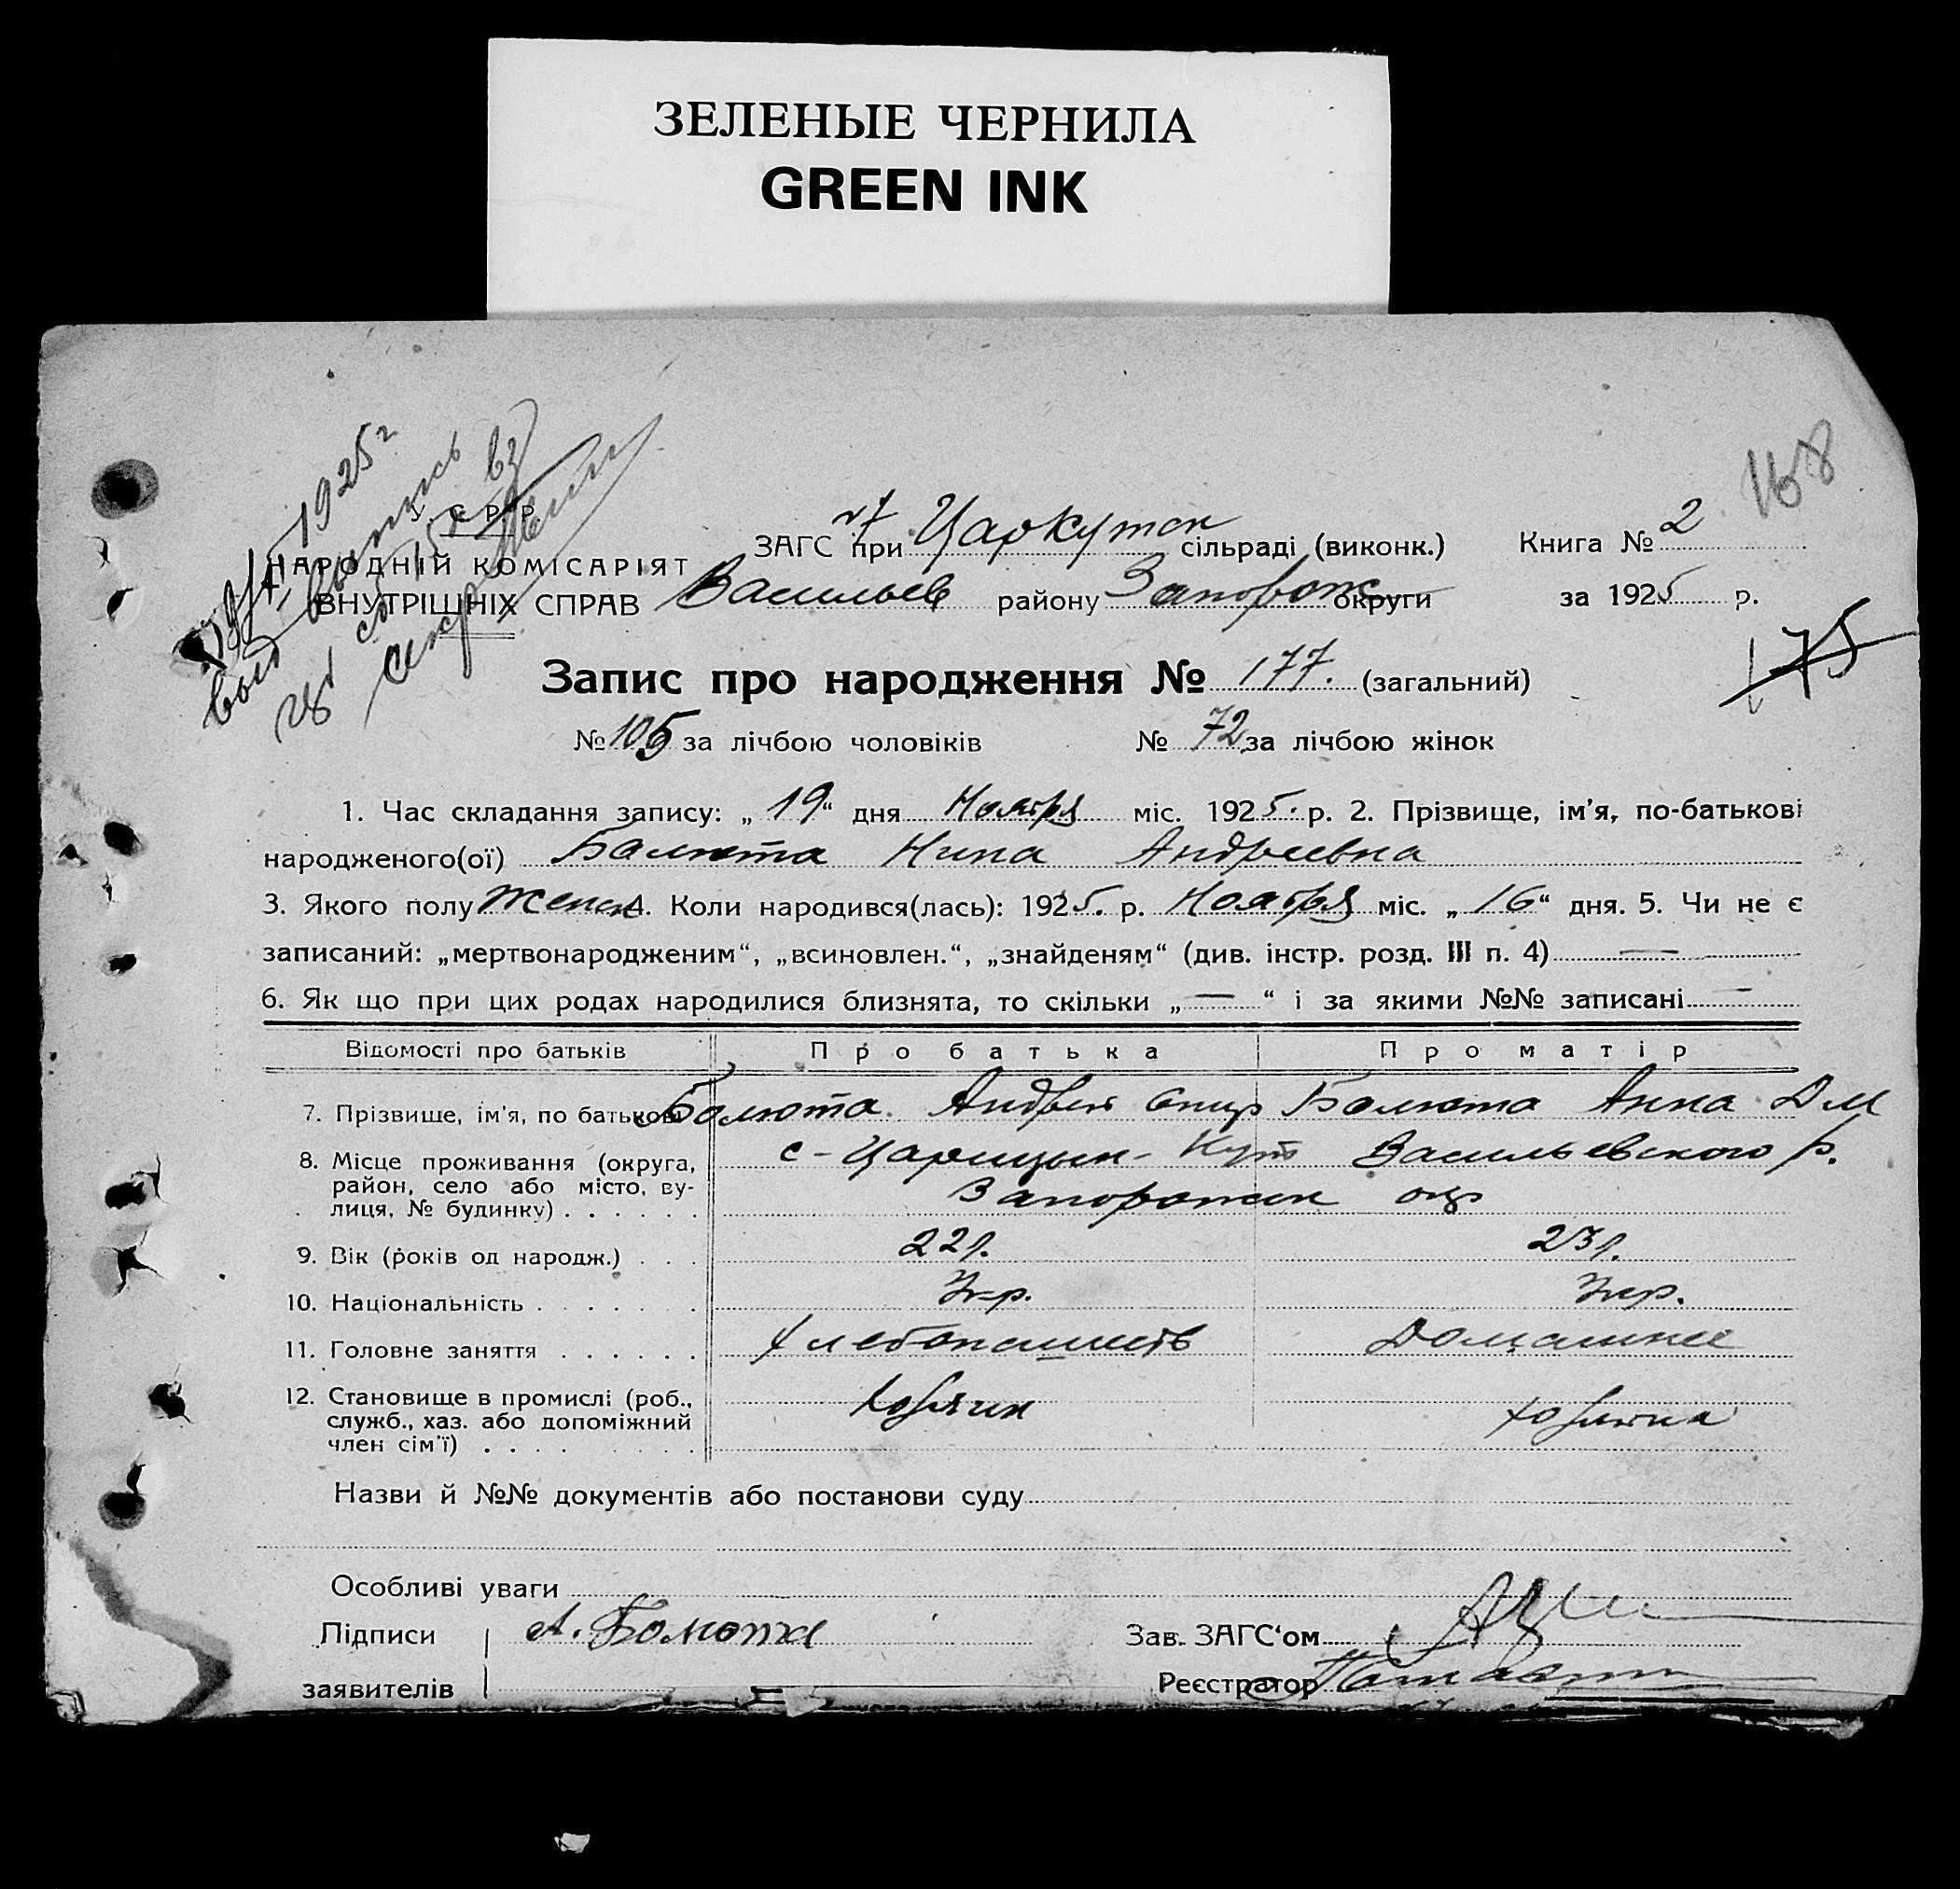 ЗЕЛЕНЫЕ ЧЕРНИЛА
GREEN INK
168
1925 г
У. С Р Р
НАРОДНІЙ КОМІСАРІЯТ
ВНУТРІШНІХ СПРАВ
ЗАГС при Царкутск сільраді (виконк.) Книга № 2
Васильев району Запорож округи за 1925 р.
175
Запис про народження № 177. (загальний)
№ 105 за лічбою чоловіків № 72 за лічбою жінок
1. Час складання запису: „19“ дня Ноября міс. 1925. р. 2. Прізвище, ім'я, по-батькові
народженого(ої) Балюта Нина Андреевна
3. Якого полу женск 4. Коли народився(лась): 1925. р. Ноября міс. „16“ дня. 5. Чи не є
записаний: „мертвонародженим“, „всиновлен.“, „знайденям“ (див. інстр. розд. III п. 4) —
6. Як що при цих родах народилися близнята, то скільки „—“ і за якими №№ записані —
Відомості про батьків Про батька Про матір
7. Прізвище, ім'я, по батькові Балюта Андрей Спир Балюта Анна Дм
8. Місце проживання (округа, с-Царицын-Кут Васильевского р.
район, село або місто, ву-
лиця, № будинку) . . . . . . Запорожск окр
9. Вік (років од народж.) . . . 22 г. 23 г.
10. Національність . . . . . . . Укр. Укр.
11. Головне заняття . . . . . . Хлебопашеств Домашнее
12. Становище в промислі (роб.,
служб., хаз. або допоміжний Хозяин хозяйка
член сім'ї) . . . .
Назви й №№ документів або постанови суду
Особливі уваги
Підписи А. Балюта Зав. ЗАГС‘ом
заявителів Реєстратор